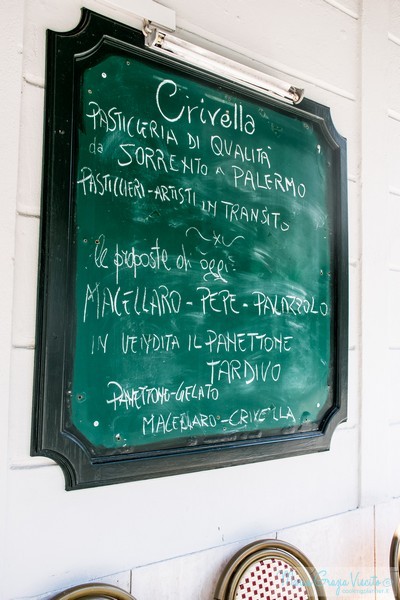 Crivella
PASTICCERIA DI QUALITÀ
da SORRENTO a PALERMO
PASTICCIERI-ARTISTI IN TRANSITO
le proposte di oggi:
MACELLARO - PEPE - PALAZZOLO
IN VENDITA IL PANETTONE
TARDIVO
PANETTONE-GELATO
MACELLARO-CRIVELLA
Grazia Viscito